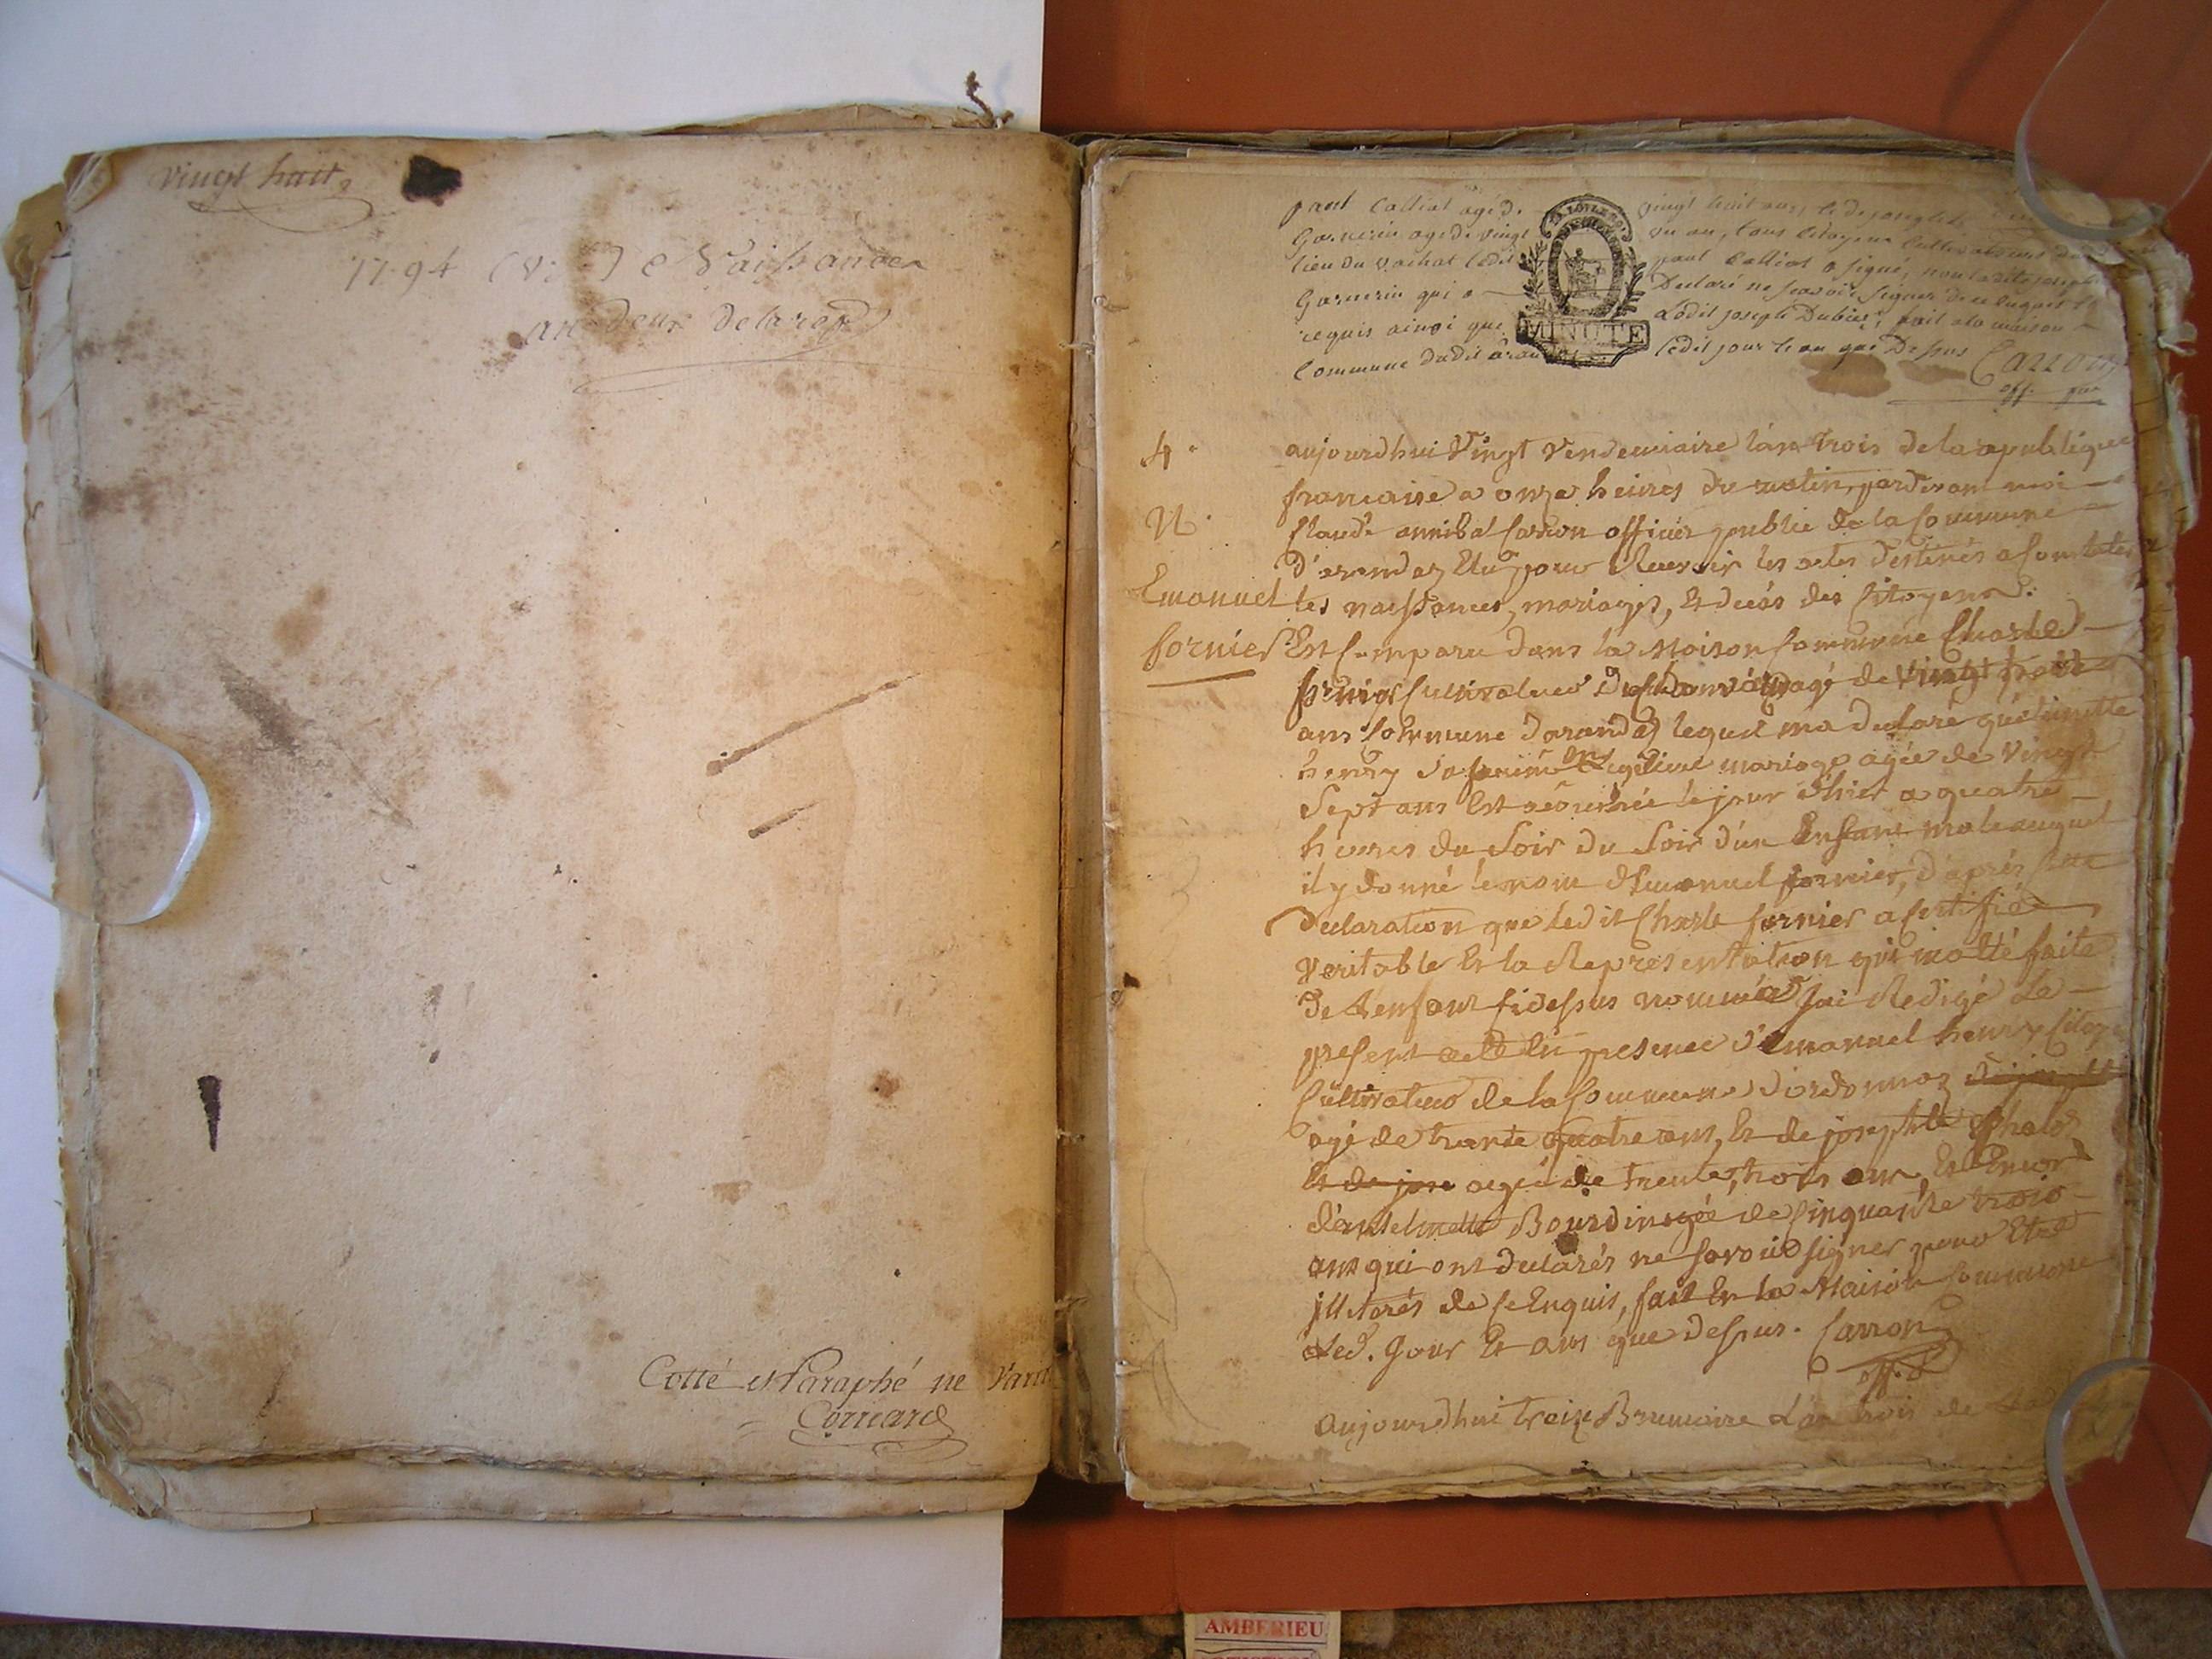 vingt huit
1794 (v ) Naissances
an deux de la rep
Cotté et Paraphé ne Vari
Corriard
paul Calliat agé de vingt huit ans, le de
Garnerin agé de vingt un an, tous citoyens cultivateurs
lieu du vachat ledit paul Calliat a signé, non
Garnerin qui a Declaré ne scavoir signer de ce
requis ainsi que Ledit joseph Dubier, fait a la maison
Commune dudit ledit jour et an que Dessus Carron
off. pub
LA LOI LE ROI
MINUTE
4.
N.
Emanuel
fornier
aujourdhui Vingt Vendemiaire l'an trois de la republique
francaise a onze heures du matin, pardevant moi
Claude annibal Carron officier public de la Commune
d'arandaz Elu pour Recevoir les actes destinés a Constater
les naissances, mariages, et decès des Citoyens.
Est Comparu dans la Maison Commune Charle
fornier Cultivateur agé de vingt trois
ans Commune darandaz lequel ma declaré que
henry sa femme En legitime mariage agée de Vingt
Sept ans Est acouchée le jour d'hier a quatre
heures du Soir du Soir d'un Enfant male auquel
il y donné le nom d'Emanuel fornier, d'après
declaration que ledit Charle fornier a Certifié
veritable Et la Representation qui ma Eté faite
de l'enfant Cidessus nommé Jai Redigé Le
present acte En presence d'emanuel henry
Cultivateur de la Commune d'ordonnaz
agé de trente quatre ans, Et de josephte
Et de jose agée de trente, trois ans, Et Encor
d'antelmette Bourdin agée de Cinquante trois
ans qui ont declarés ne savoir signer pour Etre
illiterés de Ce Enquis, fait En la Maison Commune
Led. Jour Et ans que dessus. Carron
off. p
Aujourdhui treize Brumaire L'an trois de
AMBERIEU